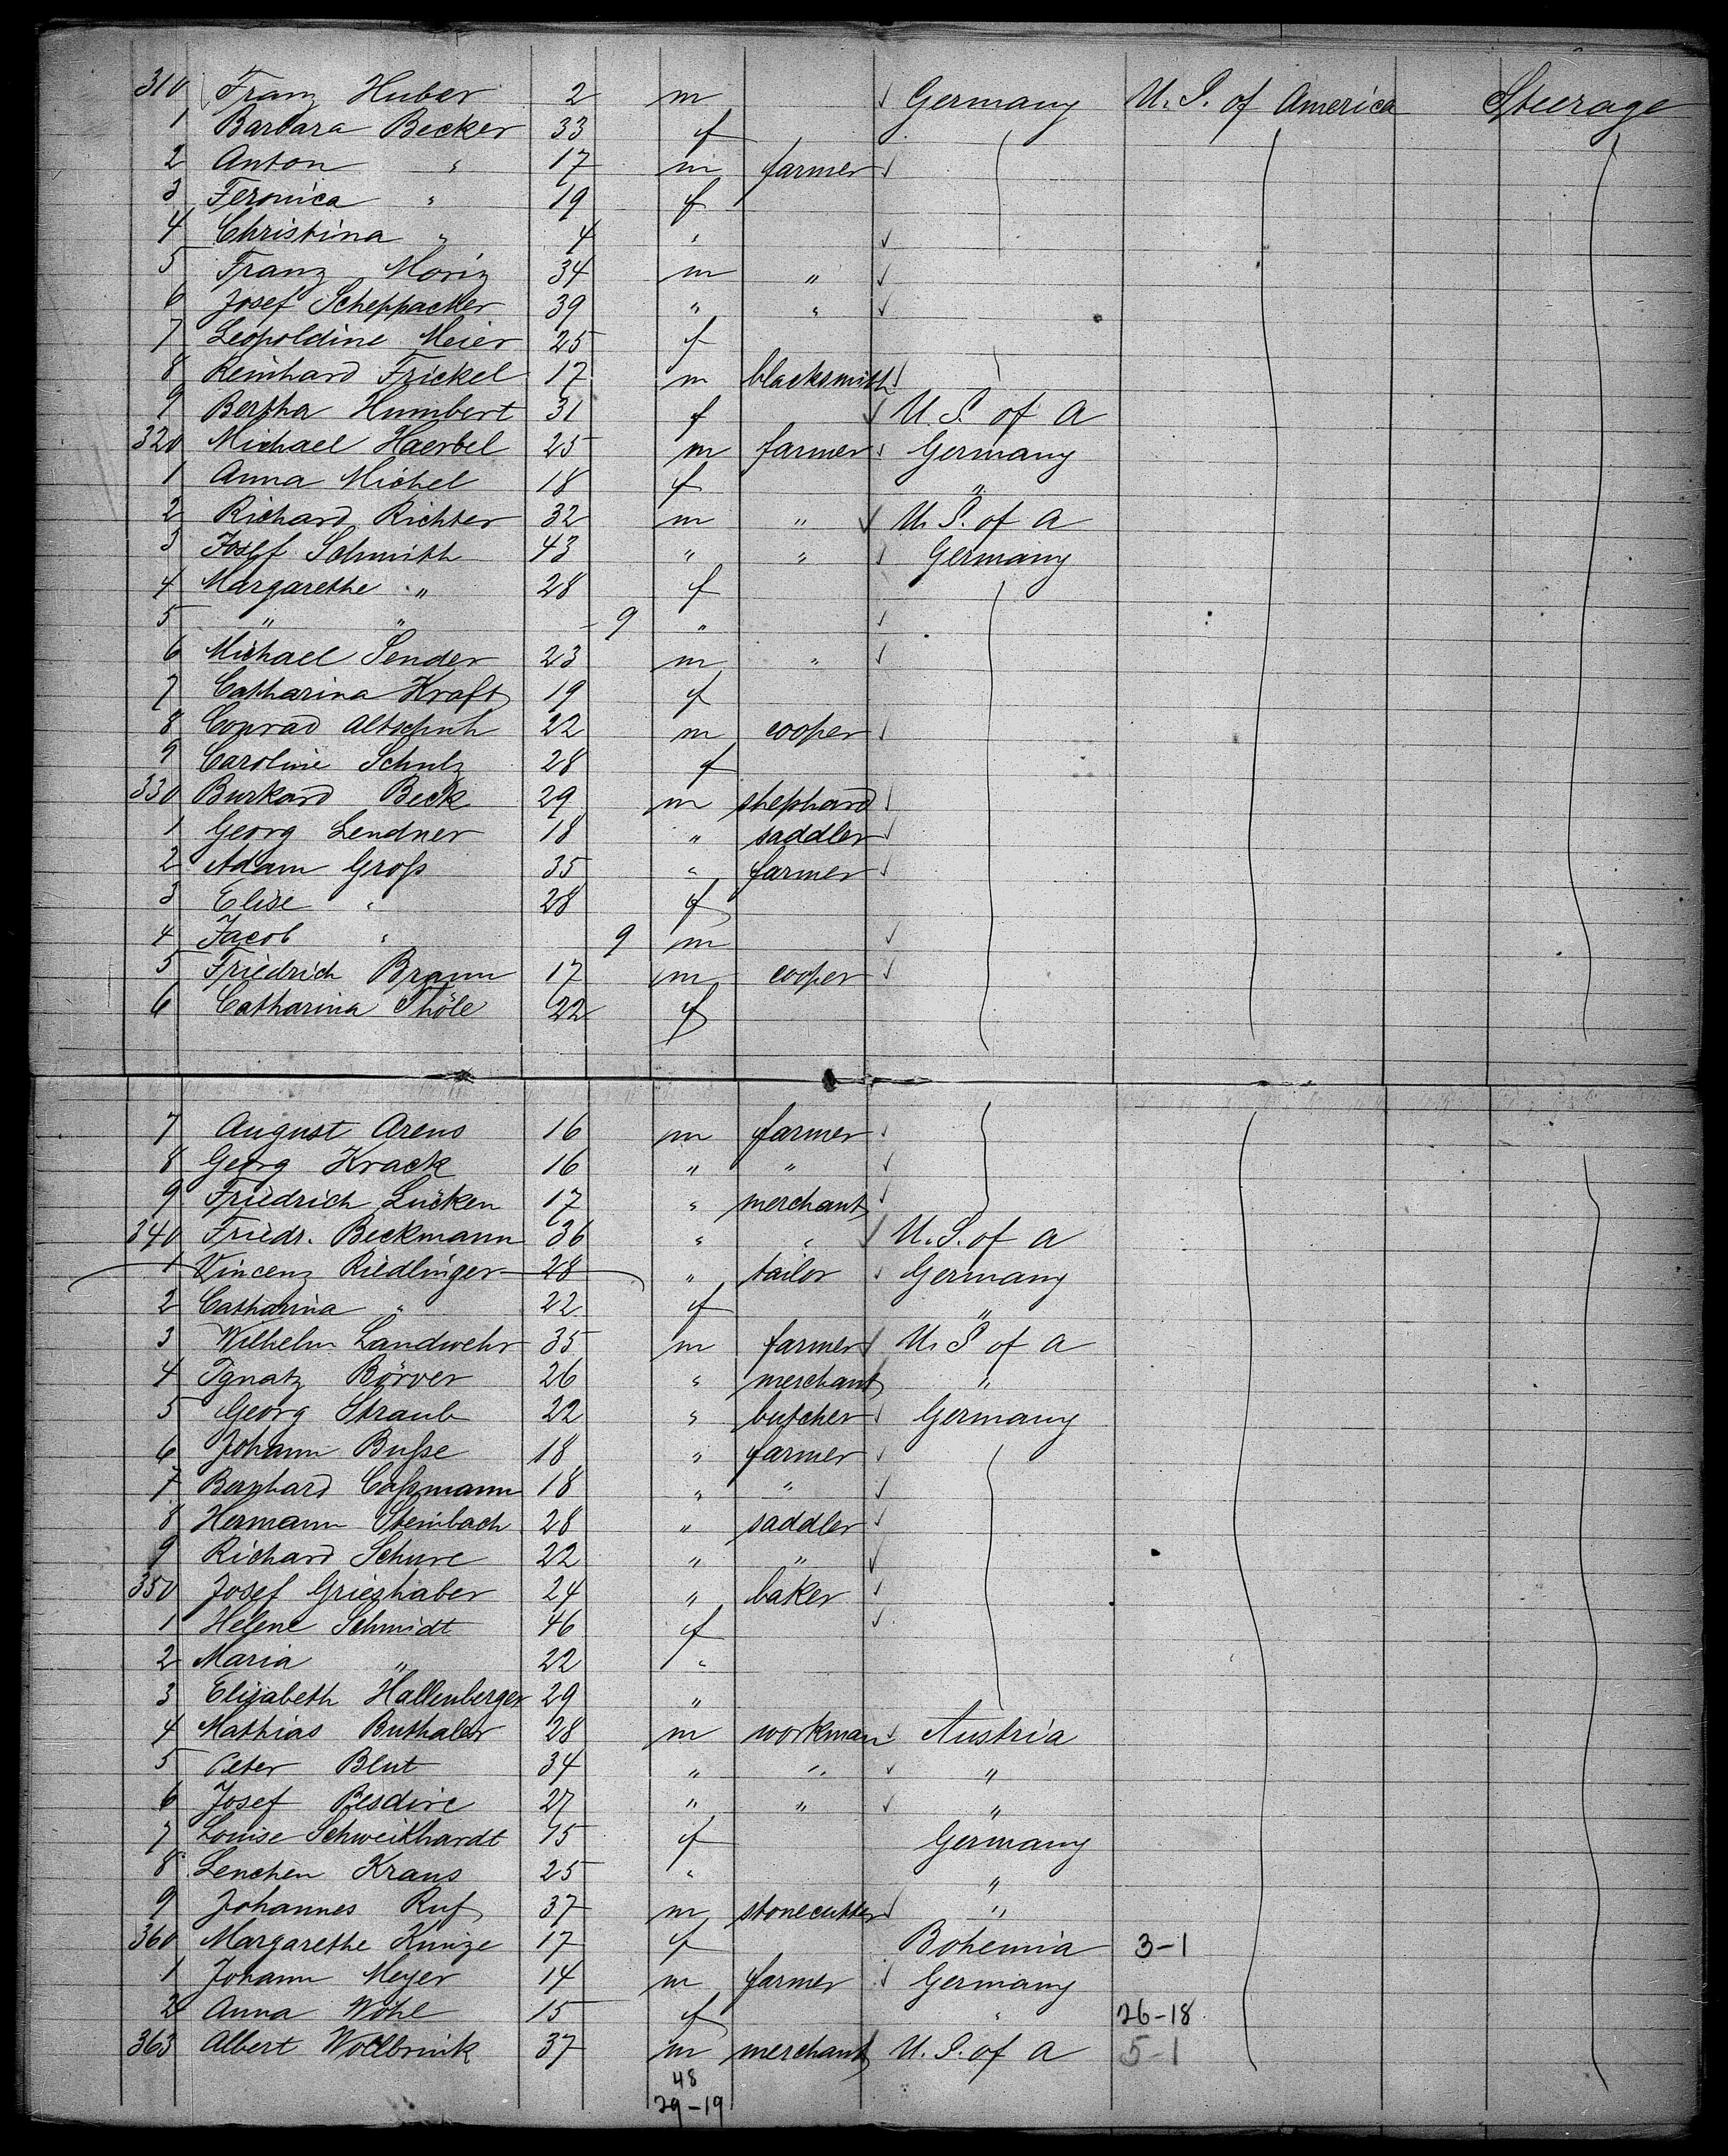 310 Franz Huber 2 m Germany U. S. of America Steerage
1 Barbara Becker 33 f
2 Anton " 17 m farmer
3 Feronica " 19 f
4 Christina " 4 "
5 Franz Moriz 34 m "
6 Josef Scheppacker 39 " "
7 Leopoldine Meier 25 f
8 Reinhard Frickel 17 m blacksmith
9 Bertha Humbert 31 f U. S. of A
320 Michael Haerbel 25 m farmer Germany
1 Anna Michel 18 f "
2 Richard Richter 32 m " U. S. of A
3 Josef Schmith 43 " " Germany
4 Margarethe " 28 f
5 " " 9 "
6 Michael Sender 23 m "
7 Catharina Kraft 19 f
8 Conrad 22 m cooper
9 Caroline Schulz 28 f
330 Burkard Beck 29 m shephard
1 Georg Lendner 18 " saddler
2 Adam Groß 35 " farmer
3 Elise " 28 f
4 Jacob " 9 m
5 Friedrich Braun 17 m cooper
6 Catharina Thöle 22 f
7 August Arens 16 m farmer
8 Georg Krack 16 " "
9 Friedrich Lücken 17 " merchant
340 Friedr. Beckmann 36 " " U. S. of A
1 Vincenz Riedlinger 28 " tailor Germany
2 Catharina " 22 f "
3 Wilhelm Landwehr 35 m farmer U. S of A
4 Ignatz Börver 26 " merchant "
5 Georg Straub 22 " butcher Germany
6 Johann Buße 18 " farmer
7 Bernhard Caßmann 18 " "
8 Hermann Steinbach 28 " saddler
9 Richard Schure 22 " "
350 Josef Grieshaber 24 " baker
1 Helene Schmidt 46 f
2 Maria " 22 "
3 Elisabeth Hallenberger 29 "
4 Mathias Buthaler 28 m workman Austria
5 Peter Blut 34 " " "
6 Josef Besdire 27 " " "
7 Louise Schweikhardt 15 f Germany
8 Lenchen Kraus 25 " "
9 Johannes Ruf 37 m stonecutter "
360 Margarethe Kunze 17 f Bohemia 3-1
1 Johann Meyer 14 m farmer Germany
2 Anna Wöhl 15 f " 26-18
363 Albert Wollbrink 37 m merchant U. S. of A 5-1
48
29-19